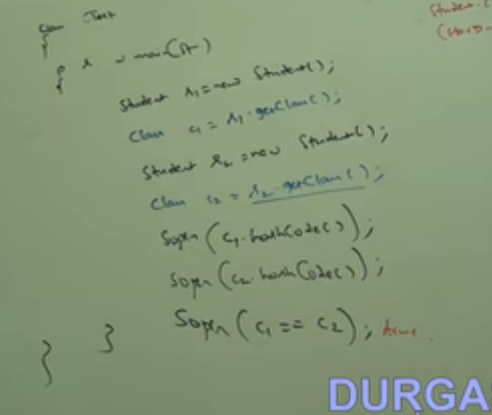 class Test
{
p s v main(St-)
{
Student s1 = new Student();
Class c1 = s1.getClass();
Student s2 = new Student();
Class c2 = s2.getClass();
Sopln (c1.hashCode());
Sopln (c2.hashCode());
Sopln (c1 == c2); true
}
}
Student.c
DURGA